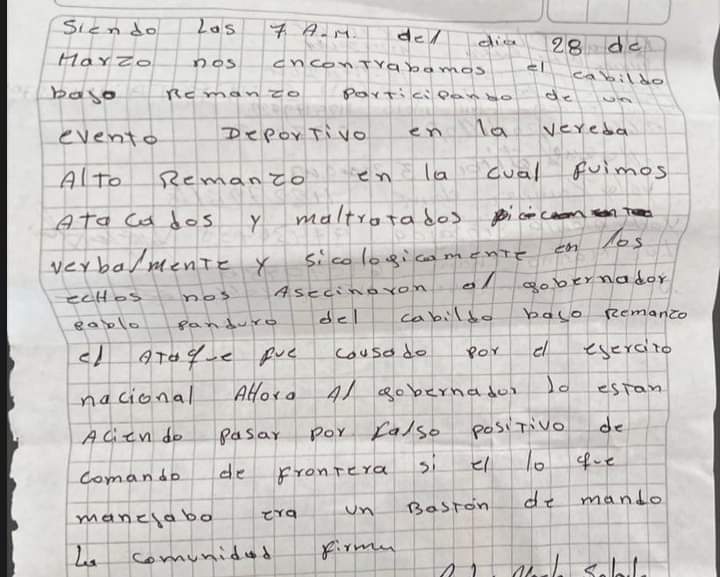 Siendo Las 7 A.M. del dia 28 de
Marzo nos encontrabamos el cabildo
baso Remanzo participando de un
evento DeporTivo en la vereda
Alto Remanzo en la cual fuimos
ATacados y maltratados
verbalmenTe y sicologicamente en los
ecHos nos Asecinaron al gobernador
pablo panduro del cabildo baso Remanzo
el ATaque fue causado por el esercito
nacional AHora Al gobernador lo estan
Aciendo pasar por falso positivo de
comando de fronTera si el lo que
manesaba era un Baston de mando
La comunidad firma